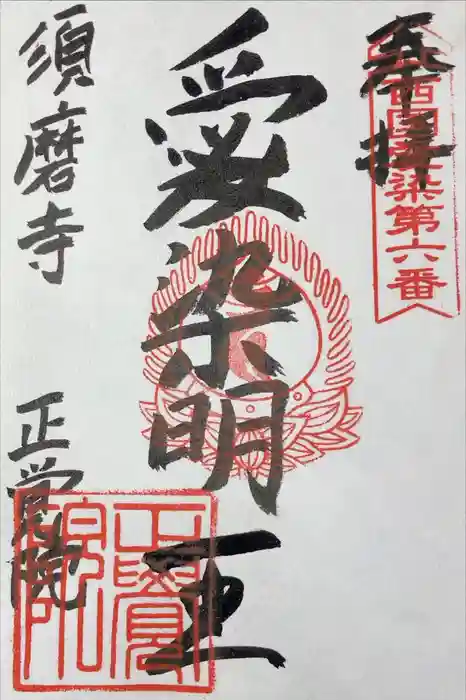 奉拝
西國愛染第六番
愛染明王
須磨寺
正覚院
正覺院